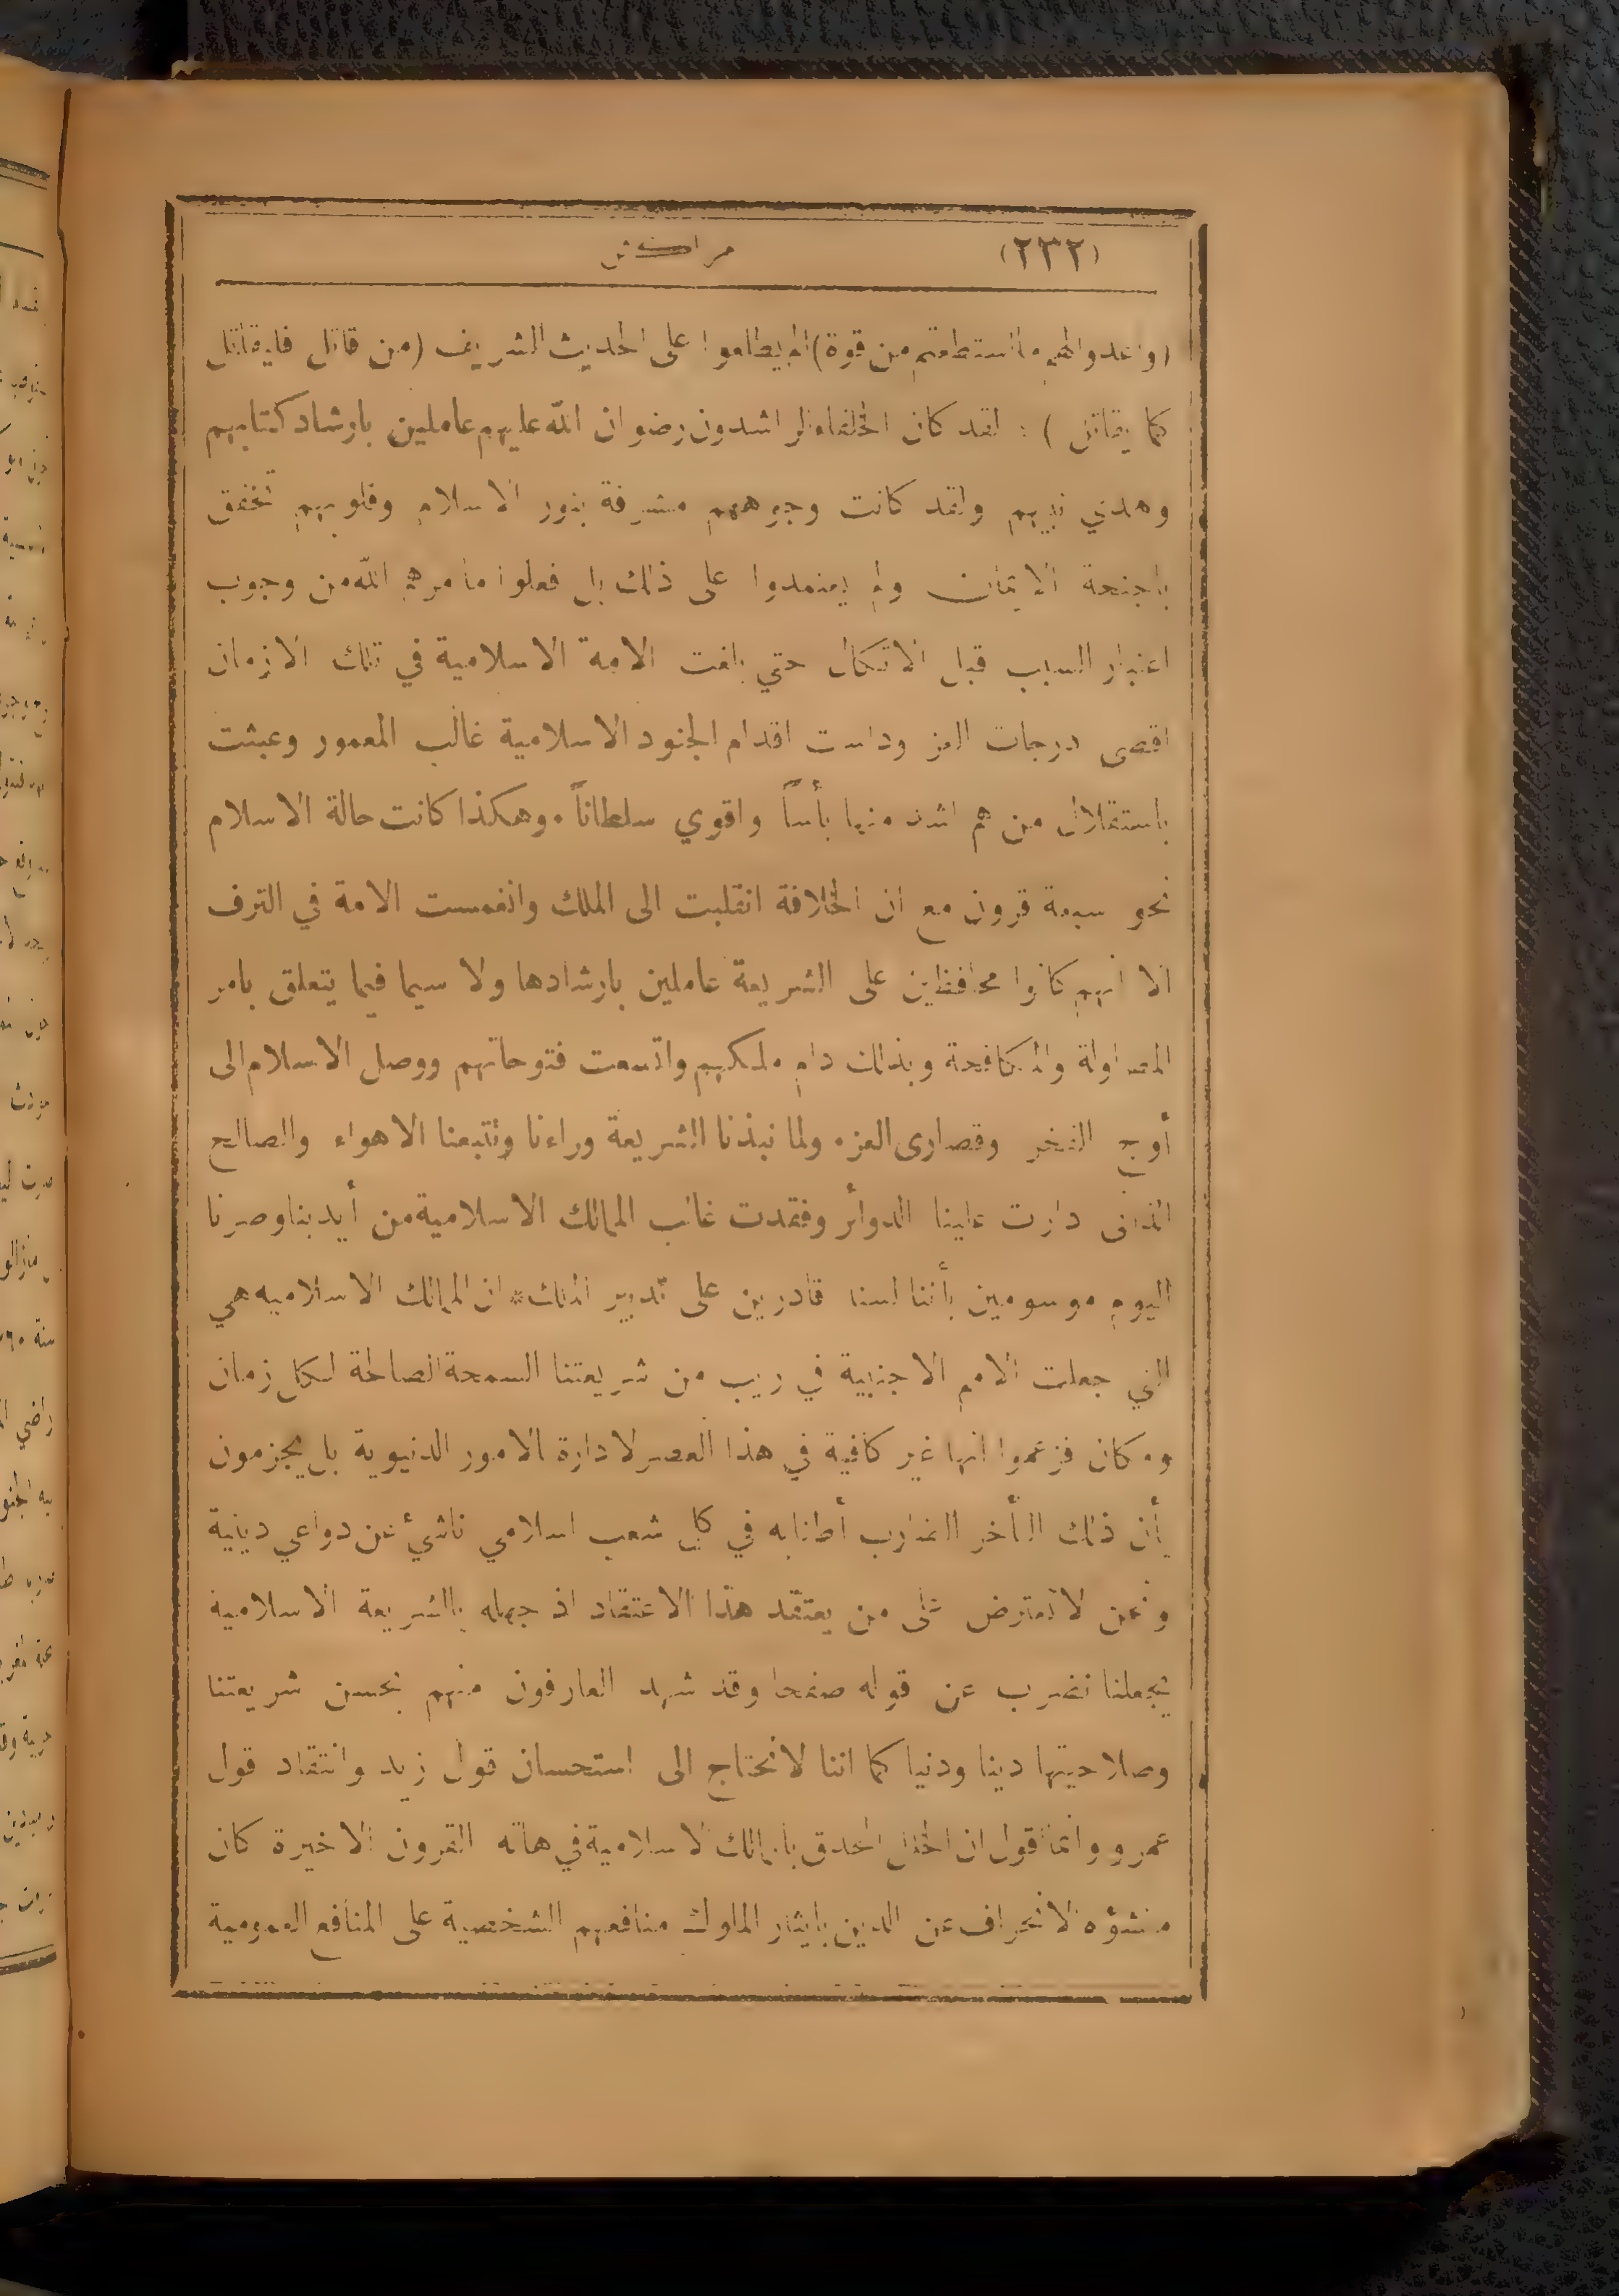 (٢٣٢) مراكش
(واعدوا لهم ما استطعتم من قوة) الم يطلعوا على الحديث الشريف (من قاتل فليقاتل
كما يقاتل) : لقد كان الخلفاء الراشدون رضوان الله عليهم عاملين بارشاد كتابهم
وهدي نبيهم ولقد كانت وجوههم مشرقة بنور الاسلام وقلوبهم تخفق
باجنحة الايمان ولم يعتمدوا على ذلك بل فعلوا ما امرهم الله من وجوب
اعتبار السبب قبل الاتكال حتي بلغت الامة الاسلامية في تلك الازمان
اقصى درجات العز وداست اقدام الجنود الاسلامية غالب المعمور وعبثت
باستقلال من هم اشد منها بأساً واقوي سلطاناً . وهكذا كانت حالة الاسلام
نحو سبعة قرون مع ان الخلافة انقلبت الى الملك وانغمست الامة في الترف
الا انهم كانوا محافظين على الشريعة عاملين بارشادها ولا سيما فيما يتعلق بامر
المصاولة والمكافحة وبذلك دام ملكهم واتسعت فتوحاتهم ووصل الاسلام الى
أوج الفخر وقصارى العز ٠ ولما نبذنا الشريعة وراءنا وتتبعنا الاهواء والصالح
الذاتى دارت علينا الدوائر وفقدت غالب الممالك الاسلامية من أيدينا وصرنا
اليوم موسومين بأننا لسنا قادرين على تدبير الملك * ان الممالك الاسلاميه هي
التي جعلت الامم الاجنبية في ريب من شريعتنا السمحة الصالحة لكل زمان
ومكان فزعموا انها غير كافية في هذا العصر لادارة الامور الدنيوية بل يجزمون
بأن ذلك التأخر الضارب أطنابه في كل شعب اسلامي ناشئ عن دواعي دينية
ونحن لا نعترض على من يعتقد هذا الاعتقاد اذ جهله بالشريعة الاسلامية
يجعلنا نضرب عن قوله صفحا وقد شهد العارفون منهم بحسن شريعتنا
وصلاحيتها دينا ودنيا كما اننا لا نحتاج الى استحسان قول زيد وانتقاد قول
عمرو وانما قول ان الخلل المحدق بالممالك الاسلامية في هاته القرون الاخيرة كان
منشؤه الانحراف عن الدين بايثار الملوك منافعهم الشخصية على المنافع العمومية